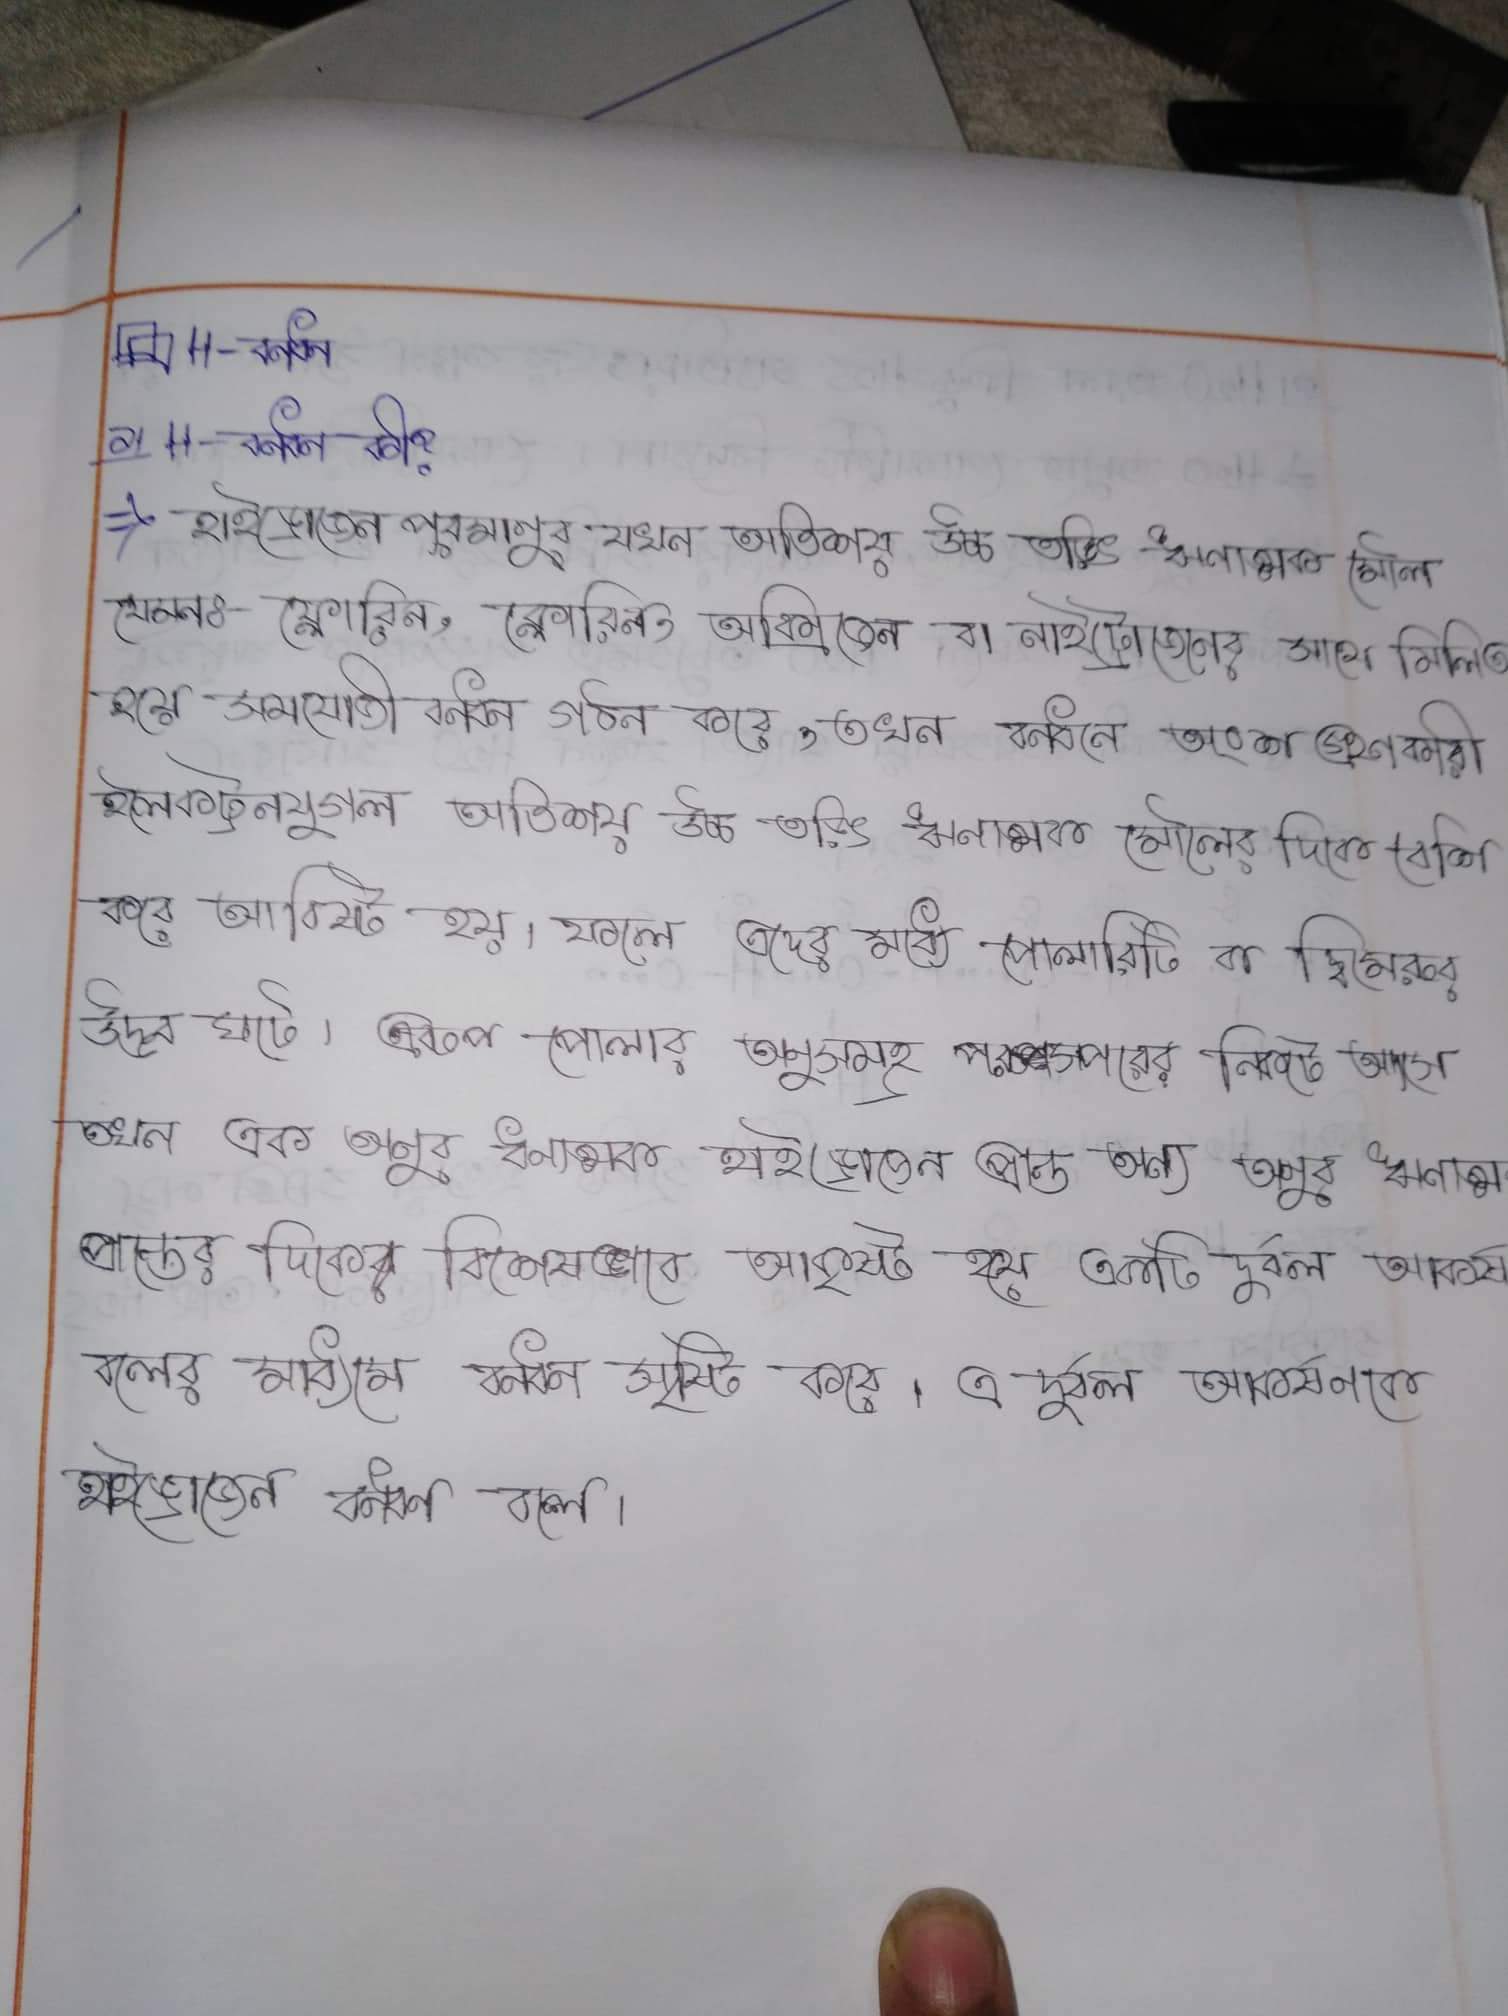 H-বন্ধন
৫। H-বন্ধন কী?
⇒ হাইড্রোজেন পরমাণুর যখন অতিশয় উচ্চ তড়িৎ ঋনাত্মক মৌল
যেমনঃ- ফ্লোরিন, ক্লোরিন, অক্সিজেন বা নাইট্রোজেনের সাথে মিলিত
হয়ে সমযোজী বন্ধন গঠন করে, তখন বন্ধনে অংশ গ্রহনকারী
ইলেকট্রনযুগল অতিশয় উচ্চ তড়িৎ ঋনাত্মক মৌলের দিকে বেশি
করে আকিষ্ট হয়। ফলে এদের মধ্যে পোলারিটি বা দ্বিমেরুর
উদ্ভব ঘটে। এরূপ পোলার অনুসমূহ পরস্পরের নিকটে আসে
তখন এক অনুর ধনাত্মক হাইড্রোজেন প্রান্ত অন্য অনুর ঋনাত্ম
প্রান্তের দিকের বিশেষভাবে আকৃষ্ট হয়ে একটি দুর্বল আকর্ষ
বলের মাধ্যমে বন্ধন সৃষ্টি করে। এ দুর্বল আকর্ষনকে
হাইড্রোজেন বন্ধন বলে।